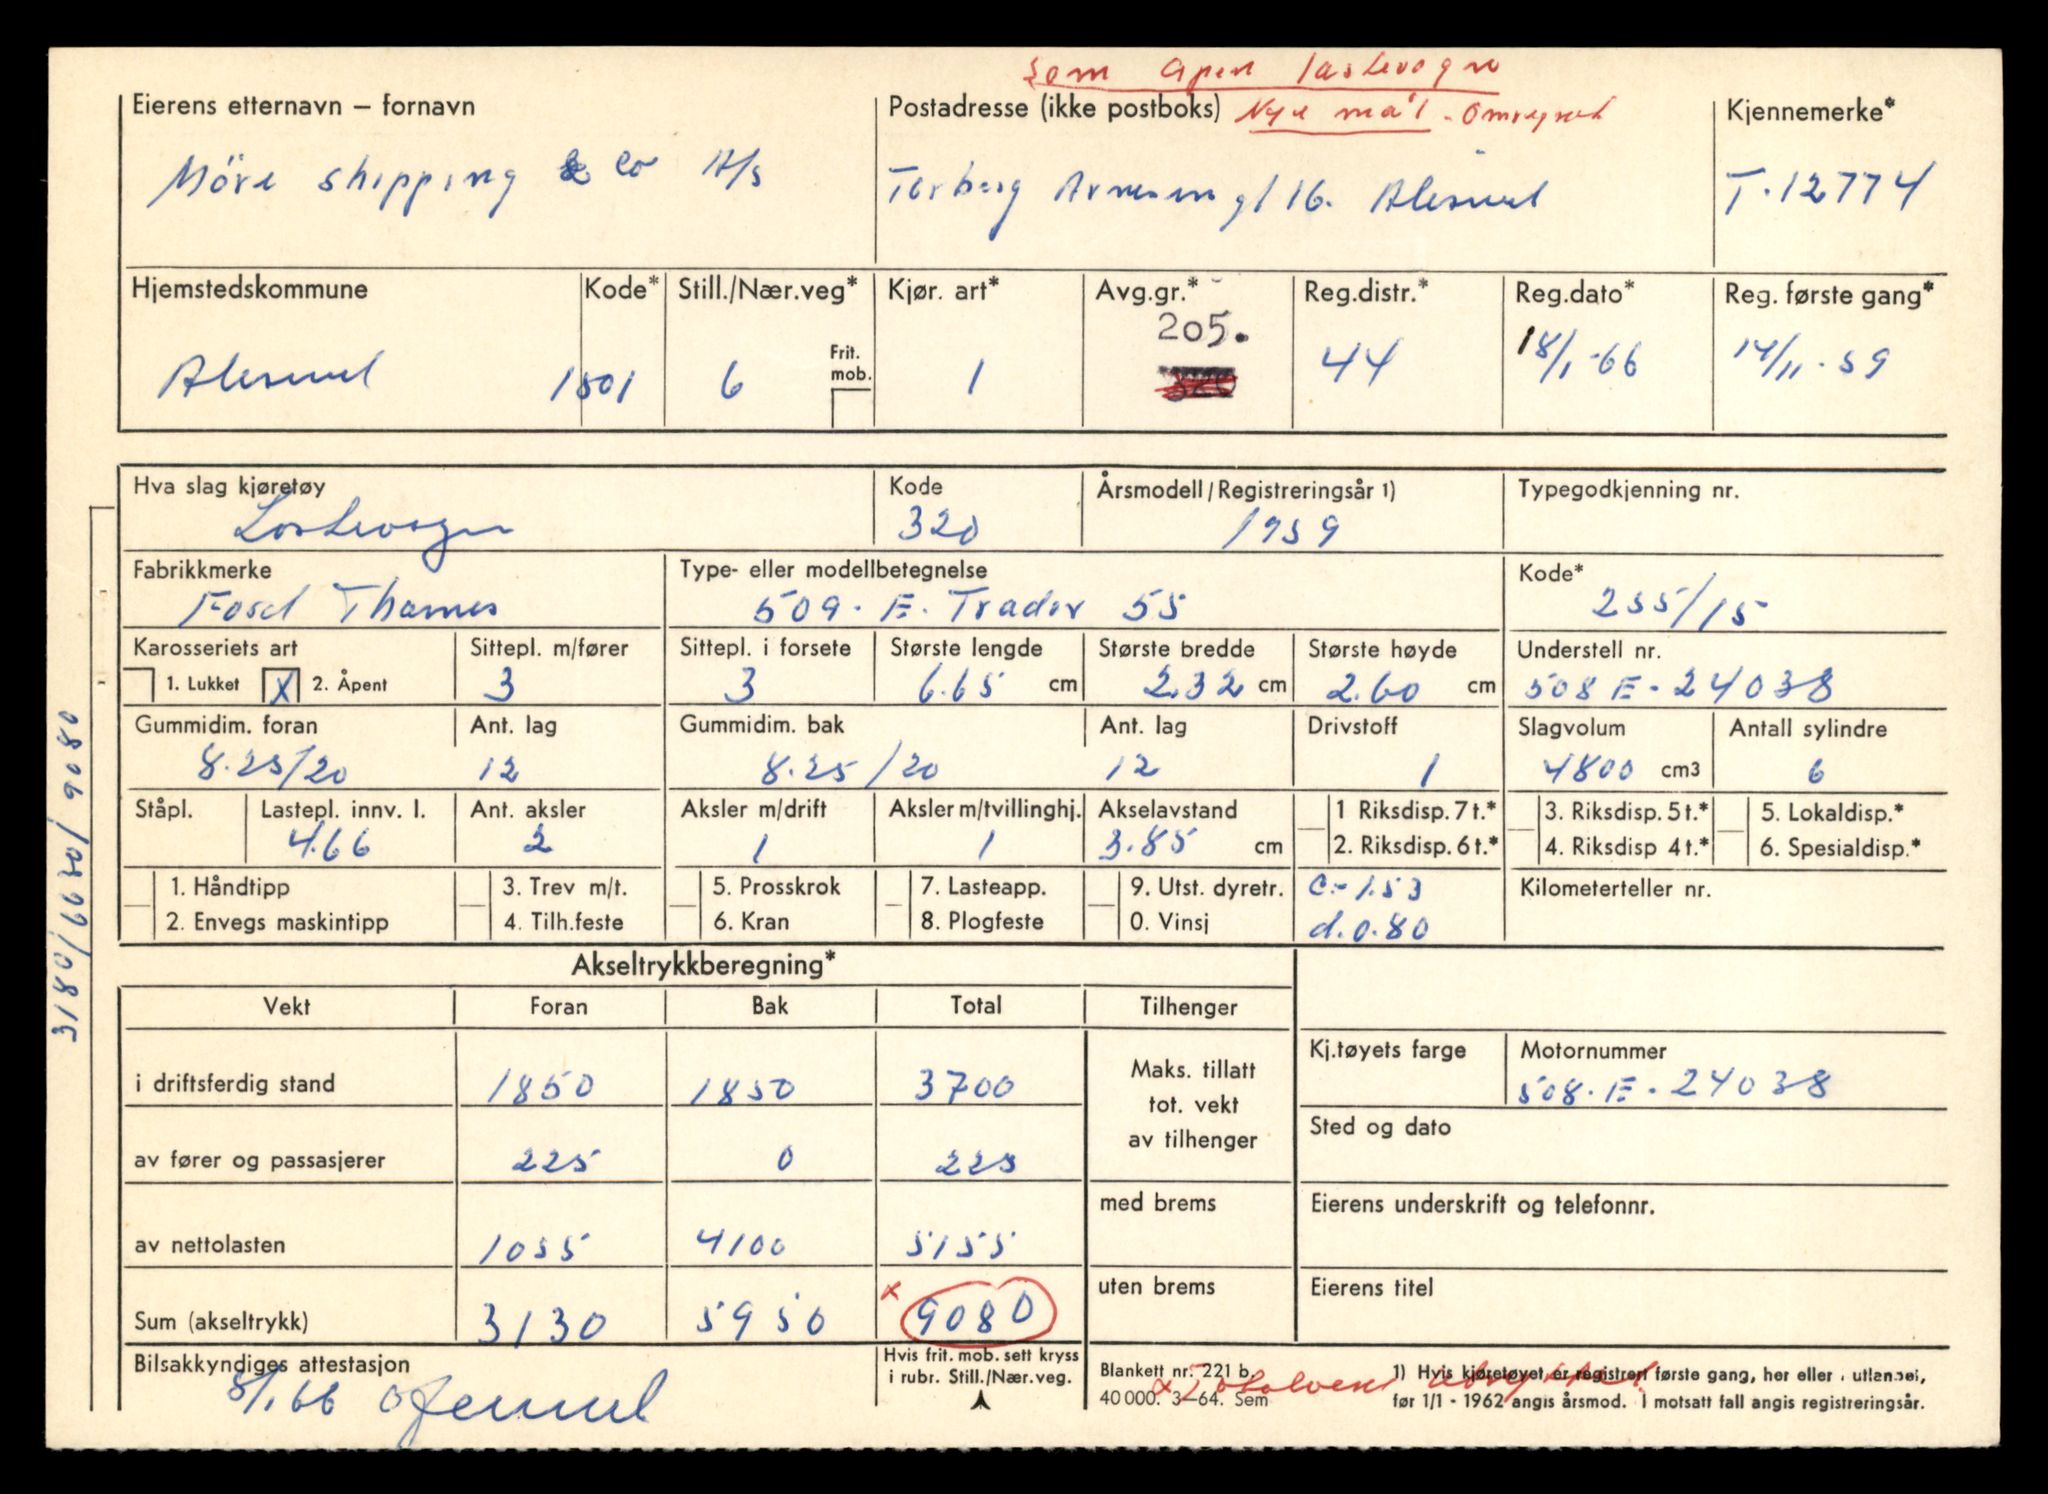 Som åpen lastevogn
Eierens etternavn – fornavn
Postadresse (ikke postboks) Nye mål - Omregnet
Kjennemerke*
Möre shipping & co A/s
Torberg Arnesen gt 16. Ålesund
T-12774
Hjemstedskommune Kode* Still./Nær.veg* Kjør. art* Avg.gr.* Reg.distr.* Reg.dato* Reg. første gang*
205.
Frit. mob.
Ålesund 1501 6 1 320 44 18/1-66 14/11-59
Hva slag kjøretøy Kode Årsmodell/Registreringsår 1) Typegodkjenning nr.
Lastevogn 320 1959
Fabrikkmerke Type- eller modellbetegnelse Kode*
Ford Thames 509. E. Trader 55 255/15
Karosseriets art Sittepl. m/fører Sittepl. i forsete Største lengde Største bredde Største høyde Understell nr.
1. Lukket X 2. Åpent 3 3 6.65 cm 2.32 cm 2.60 cm 508 E - 24038
Gummidim. foran Ant. lag Gummidim. bak Ant. lag Drivstoff Slagvolum Antall sylindre
8.25/20 12 8.25/20 12 1 4800 cm3 6
Ståpl. Lastepl. innv. l. Ant. aksler Aksler m/drift Aksler m/tvillinghj. Akselavstand 1 Riksdisp. 7 t.* 3. Riksdisp. 5 t.* 5. Lokaldisp.*
4.66 2 1 1 3.85 cm 2. Riksdisp. 6 t.* 4. Riksdisp 4 t.* 6. Spesialdisp.*
1. Håndtipp 3. Trev m/t. 5. Prosskrok 7. Lasteapp. 9. Utst. dyretr. c.- 1.53 Kilometerteller nr.
2. Envegs maskintipp 4. Tilh.feste 6. Kran 8. Plogfeste 0. Vinsj d. 0.80
Akseltrykkberegning*
Vekt Foran Bak Total Tilhenger
Kj.tøyets farge Motornummer
i driftsferdig stand 1850 1850 3700
508. E - 24038
Maks. tillatt
tot. vekt
av tilhenger
Sted og dato
av fører og passasjerer 225 0 225
med brems
Eierens underskrift og telefonnr.
av nettolasten 1055 4100 5155
uten brems
Eierens titel
Sum (akseltrykk) 3130 5950 x 9080
Bilsakkyndiges attestasjon
8/1 66
Hvis frit. mob. sett kryss
i rubr. Still./Nær.veg.
Blankett nr. 221 b.
40 000. 3–64. Sem
1) Hvis kjøretøyet er registrert første gang, her eller i utlandet,
før 1/1 - 1962 angis årsmod. I motsatt fall angis registreringsår.